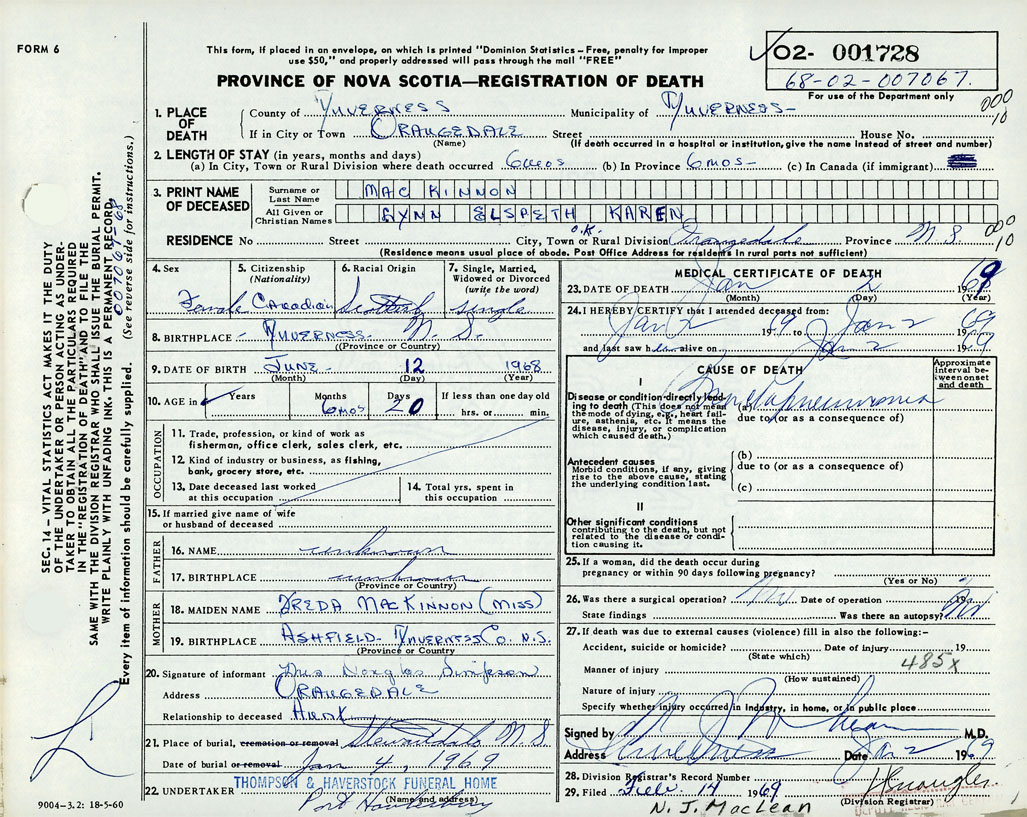 FORM 6
This form, if placed in an envelope, on which is printed "Dominion Statistics – Free, penalty for improper
use $50," and properly addressed will pass through the mail "FREE"
PROVINCE OF NOVA SCOTIA—REGISTRATION OF DEATH
O2- 001728
68-02-007067.
For use of the Department only
000
10
1. PLACE OF DEATH
County of INVERNESS Municipality of INVERNESS-
If in City or Town ORANGEDALE Street House No.
(Name) (If death occurred in a hospital or institution, give the name instead of street and number)
2. LENGTH OF STAY (in years, months and days)
(a) In City, Town or Rural Division where death occurred 6mos (b) In Province 6mos- (c) In Canada (if immigrant)
3. PRINT NAME OF DECEASED
Surname or Last Name MAC KINNON
All Given or Christian Names LYNN ELSPETH KAREN
O.K.
000
10
RESIDENCE No Street City, Town or Rural Division Orangedale Province N.S.
(Residence means usual place of abode. Post Office Address for residents in rural parts not sufficient)
4. Sex Female
5. Citizenship (Nationality) Canadian
6. Racial Origin Scottish
7. Single, Married, Widowed or Divorced (write the word) Single
8. BIRTHPLACE INVERNESS. N. S.
((Province or Country)
9. DATE OF BIRTH JUNE- 12 1968
(Month) (Day) (Year)
10. AGE in Years Months 6mos Days 20 If less than one day old
hrs. or min.
OCCUPATION
11. Trade, profession, or kind of work as
fisherman, office clerk, sales clerk, etc.
12. Kind of industry or business, as fishing,
bank, grocery store, etc.
13. Date deceased last worked
at this occupation
14. Total yrs. spent in
this occupation
15. If married give name of wife
or husband of deceased
FATHER
16. NAME unknown
17. BIRTHPLACE unknown
(Province or Country)
MOTHER
18. MAIDEN NAME FREDA MACKINNON (MISS)
19. BIRTHPLACE ASHFIELD- INVERNESS Co. N.S.
(Province or Country)
20. Signature of informant Mrs Douglas Simpson
Address ORANGEDALE
Relationship to deceased Aunt
21. Place of burial, cremation or removal N S
Date of burial or removal Jan 4, 1969
22. UNDERTAKER THOMPSON & HAVERSTOCK FUNERAL HOME
(Name and address)
Port Hawkesbury
MEDICAL CERTIFICATE OF DEATH
23. DATE OF DEATH Jan 2 1969
(Month) (Day) (Year)
24. I HEREBY CERTIFY that I attended deceased from:
Jan 2 1969 to Jan 2 1969
and last saw her alive on Jan 2 1969
CAUSE OF DEATH
Approximate interval between onset and death
I
Disease or condition directly leading to death (This does not mean the mode of dying, e.g., heart failure, asthenia, etc. It means the disease, injury, or complication which caused death.)
(a) Bronchopneumonia
due to (or as a consequence of)
Antecedent causes
Morbid conditions, if any, giving rise to the above cause, stating the underlying condition last.
(b)
due to (or as a consequence of)
(c)
II
Other significant conditions
contributing to the death, but not related to the disease or condition causing it.
25. If a woman, did the death occur during
pregnancy or within 90 days following pregnancy?
(Yes or No)
26. Was there a surgical operation? No Date of operation 19
State findings Was there an autopsy? No
27. If death was due to external causes (violence) fill in also the following:–
Accident, suicide or homicide? Date of injury 19
(State which)
485X
Manner of injury
(How sustained)
Nature of injury
Specify whether injury occurred in industry, in home, or in public place
Signed by M.D.
Address Inverness Date Jan 2 1969
28. Division Registrar's Record Number
29. Filed Feb. 14 1969
(Division Registrar)
N. J. MacLean
9004–3.2: 18-5-60
SEC. 14 – VITAL STATISTICS ACT MAKES IT THE DUTY
OF THE UNDERTAKER OR PERSON ACTING AS UNDER-
TAKER TO OBTAIN ALL THE PARTICULARS REQUIRED
IN THE "REGISTRATION OF DEATH" AND TO FILE THE
SAME WITH THE DIVISION REGISTRAR WHO SHALL ISSUE THE BURIAL PERMIT.
WRITE PLAINLY WITH UNFADING INK. THIS IS A PERMANENT RECORD.
Every item of information should be carefully supplied. (See reverse side for instructions.)
007067-68